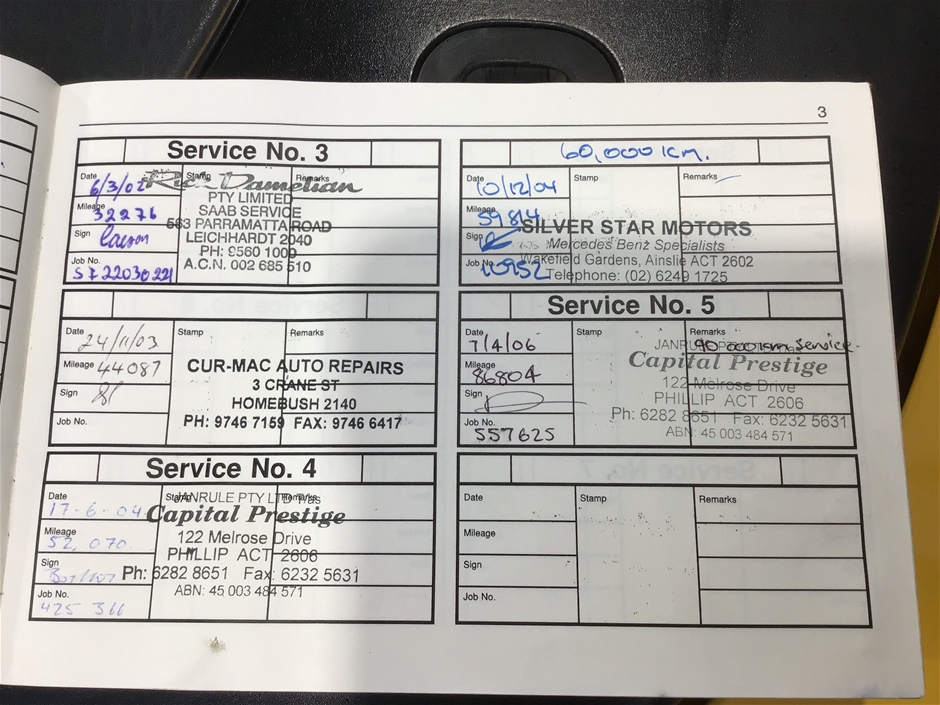 3
Service No. 3
Date 6/3/02 Stamp Remarks
Rick Damelian
PTY LIMITED
Mileage 32276
SAAB SERVICE
563 PARRAMATTA ROAD
Sign
LEICHHARDT 2040
PH: 9560 1000
Job No.
A.C.N. 002 685 510
Date 24/11/03 Stamp Remarks
Mileage 44087
CUR-MAC AUTO REPAIRS
3 CRANE ST
Sign
HOMEBUSH 2140
Job No.
PH: 9746 7159 FAX: 9746 6417
Service No. 4
Date 17-6-04 Stamp Remarks
JANRULE PTY LTD T/as
Capital Prestige
Mileage 52,070
122 Melrose Drive
PHILLIP ACT 2606
Sign
Ph: 6282 8651 Fax: 6232 5631
Job No. 425 366
ABN: 45 003 484 571
60,000 KM.
Date 10/12/04 Stamp Remarks
Mileage 59814
SILVER STAR MOTORS
Sign
Mercedes Benz Specialists
Wakefield Gardens, Ainslie ACT 2602
Job No. 10952
Telephone: (02) 6249 1725
Service No. 5
Date 7/4/06 Stamp Remarks
90 000 km service.
JANRULE
Capital Prestige
Mileage 86804
122 Melrose Drive
PHILLIP ACT 2606
Sign
Ph: 6282 8651 Fax: 6232 5631
Job No. 557625
ABN: 45 003 484 571
Date Stamp Remarks
Mileage
Sign
Job No.